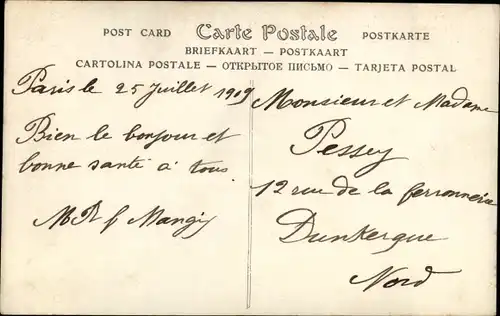 POST CARD Carte Postale POSTKARTE
BRIEFKAART — POSTKAART
CARTOLINA POSTALE — ОТКРЫТОЕ ПИСЬМО — TARJETA POSTAL
Paris le 25 Juillet 1909
Bien le bonjour et
bonne santé à tous.
Monsieur et Madame
Pessey
12 rue de la ferronnerie
Dunkerque
Nord